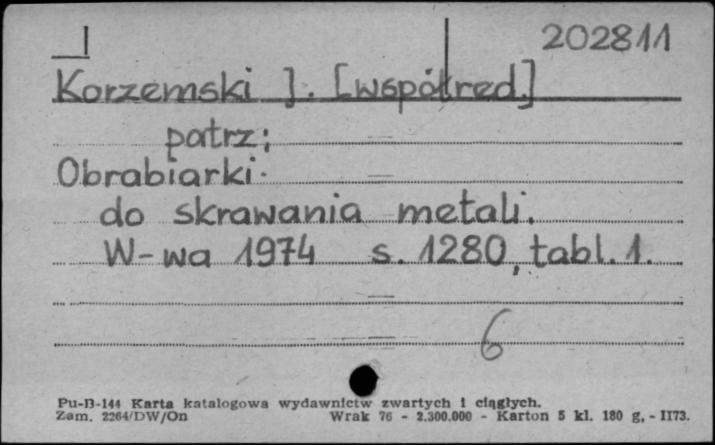 I 202811
Korzemski J. [współred.]
patrz:
Obrabiarki
do skrawania metali.
W-wa 1974 s. 1280, tabl. 1.
6
Pu-B-144 Karta katalogowa wydawnictw zwartych i ciągłych.
Zam. 2264/DW/On Wrak 76 - 2.300.000 - Karton 5 kl. 180 g. - II73.